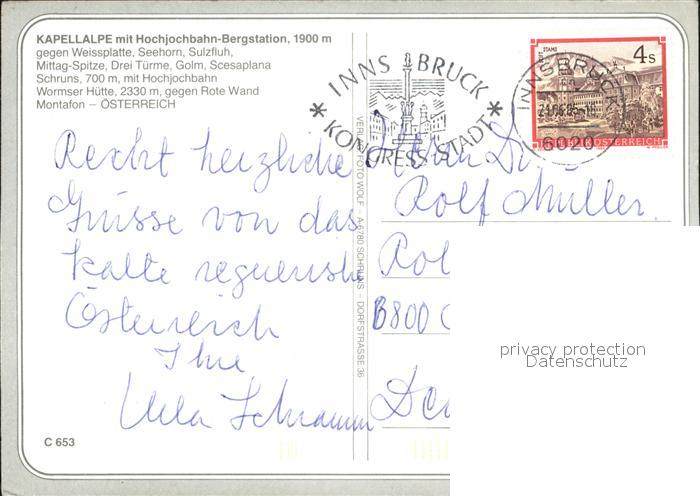 KAPELLALPE mit Hochjochbahn-Bergstation, 1900 m
gegen Weissplatte, Seehorn, Sulzfluh,
Mittag-Spitze, Drei Türme, Golm, Scesaplana
Schruns, 700 m, mit Hochjochbahn
Wormser Hütte, 2330 m, gegen Rote Wand
Montafon – ÖSTERREICH
INNSBRUCK
KONGRESS-STADT
INNSBRUCK
6020
STIFT STAMS
4 S
REPUBLIK ÖSTERREICH
Recht herzliche
Grüsse von das
kalte regnerische
Österreich
Ihre
Schramm
VERLAG FOTO WOLF - A-6780 SCHRUNS - DORFSTRASSE 36
Herrn Dr.
Rolf Müller
Rol
8800
privacy protection
Datenschutz
C 653